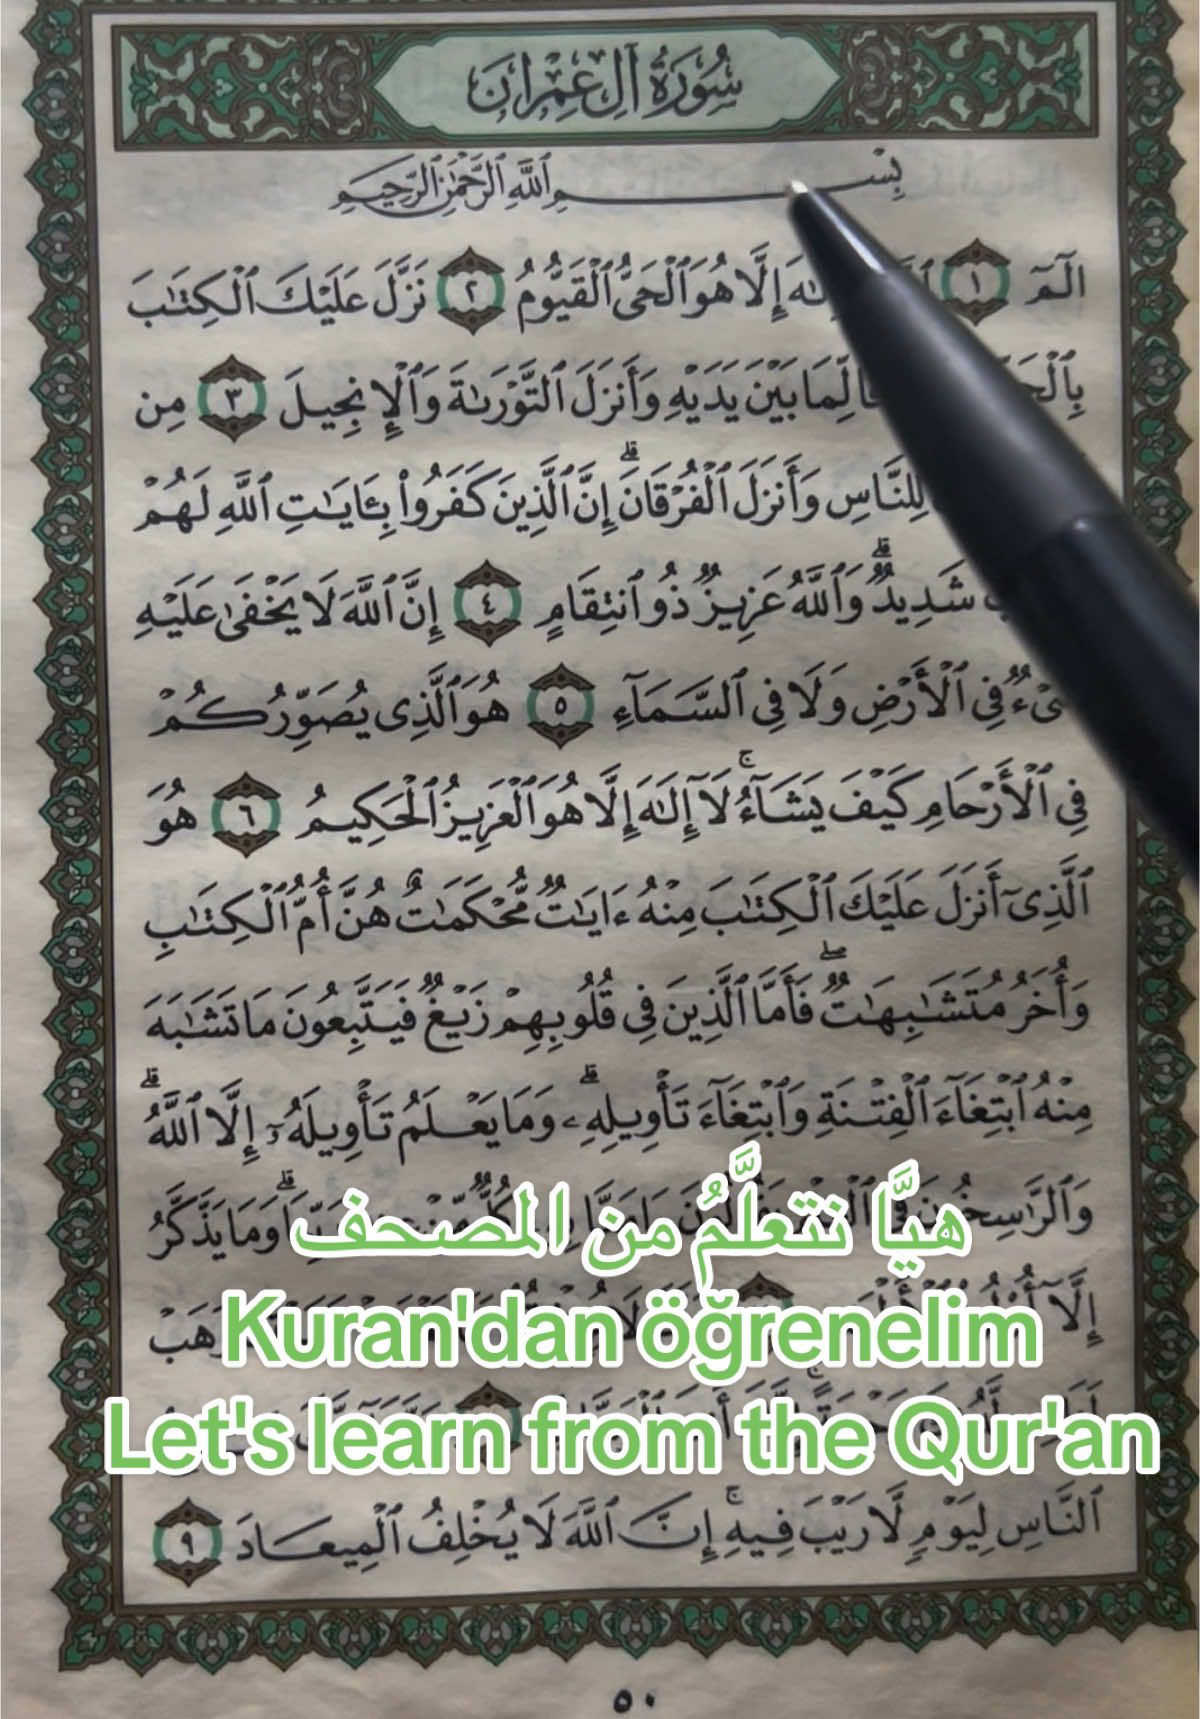 سُورَةُ آلِ عِمْرَانَ
بِسْمِ ٱللَّهِ ٱلرَّحْمَٰنِ ٱلرَّحِيمِ
الٓمٓ ١ إِلَّا هُوَ ٱلْحَىُّ ٱلْقَيُّومُ ٢ نَزَّلَ عَلَيْكَ ٱلْكِتَٰبَ
لِّمَا بَيْنَ يَدَيْهِ وَأَنزَلَ ٱلتَّوْرَىٰةَ وَٱلْإِنجِيلَ ٣ مِن
لِّلنَّاسِ وَأَنزَلَ ٱلْفُرْقَانَۗ إِنَّ ٱلَّذِينَ كَفَرُوا۟ بِـَٔايَٰتِ ٱللَّهِ لَهُمْ
شَدِيدٌۗ وَٱللَّهُ عَزِيزٌ ذُو ٱنتِقَامٍ ٤ إِنَّ ٱللَّهَ لَا يَخْفَىٰ عَلَيْهِ
فِى ٱلْأَرْضِ وَلَا فِى ٱلسَّمَآءِ ٥ هُوَ ٱلَّذِى يُصَوِّرُكُمْ
فِى ٱلْأَرْحَامِ كَيْفَ يَشَآءُۚ لَآ إِلَٰهَ إِلَّا هُوَ ٱلْعَزِيزُ ٱلْحَكِيمُ ٦ هُوَ
ٱلَّذِىٓ أَنزَلَ عَلَيْكَ ٱلْكِتَٰبَ مِنْهُ ءَايَٰتٌ مُّحْكَمَٰتٌ هُنَّ أُمُّ ٱلْكِتَٰبِ
وَأُخَرُ مُتَشَٰبِهَٰتٌۖ فَأَمَّا ٱلَّذِينَ فِى قُلُوبِهِمْ زَيْغٌ فَيَتَّبِعُونَ مَا تَشَٰبَهَ
مِنْهُ ٱبْتِغَآءَ ٱلْفِتْنَةِ وَٱبْتِغَآءَ تَأْوِيلِهِۦۗ وَمَا يَعْلَمُ تَأْوِيلَهُۥٓ إِلَّا ٱللَّهُۗ
وَٱلرَّٰسِخُونَ فِى وَمَا يَذَّكَّرُ
هيَّا نتعلَّمُ من المصحف
إِلَّآ أُو۟لُوا۟ وَهَبْ
Kuran'dan öğrenelim
Let's learn from the Qur'an
ٱلنَّاسِ لِيَوْمٍ لَّا رَيْبَ فِيهِۚ إِنَّ ٱللَّهَ لَا يُخْلِفُ ٱلْمِيعَادَ ٩
٥٠